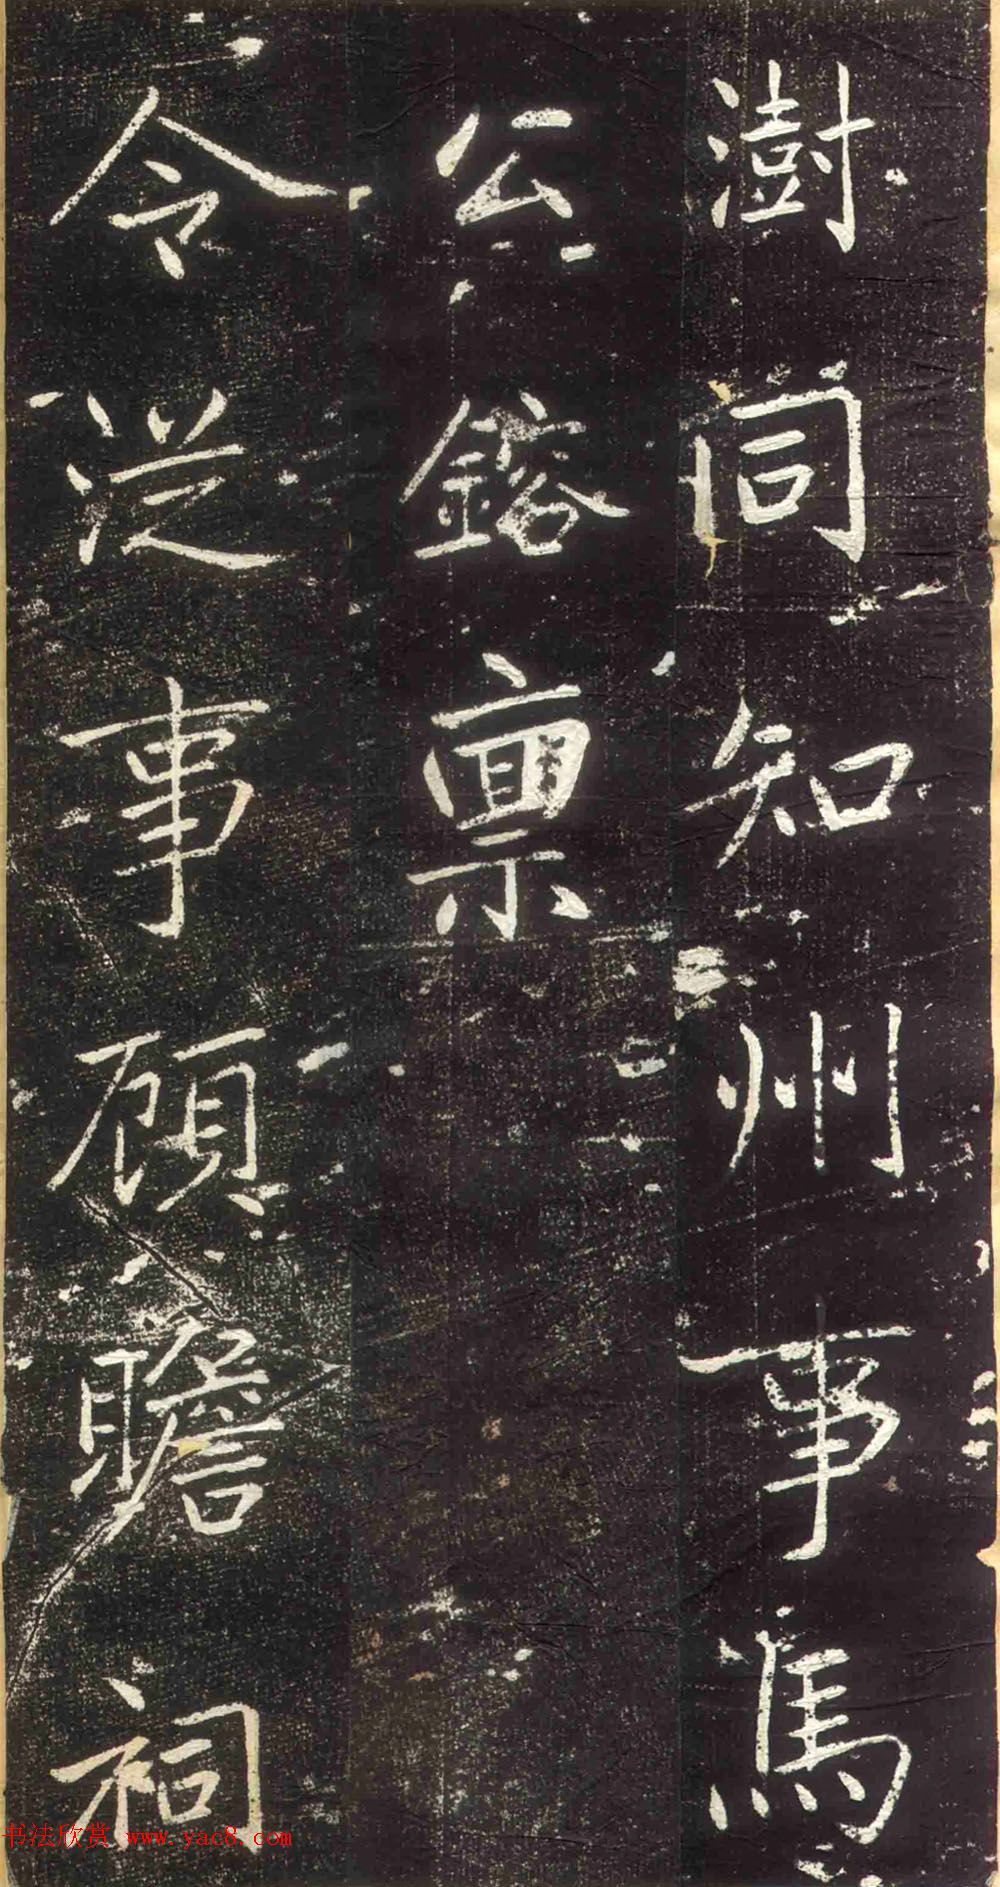 澍同知州事馮
公鎔禀
令從事顧瞻祠
书法欣赏 www.yac8.com